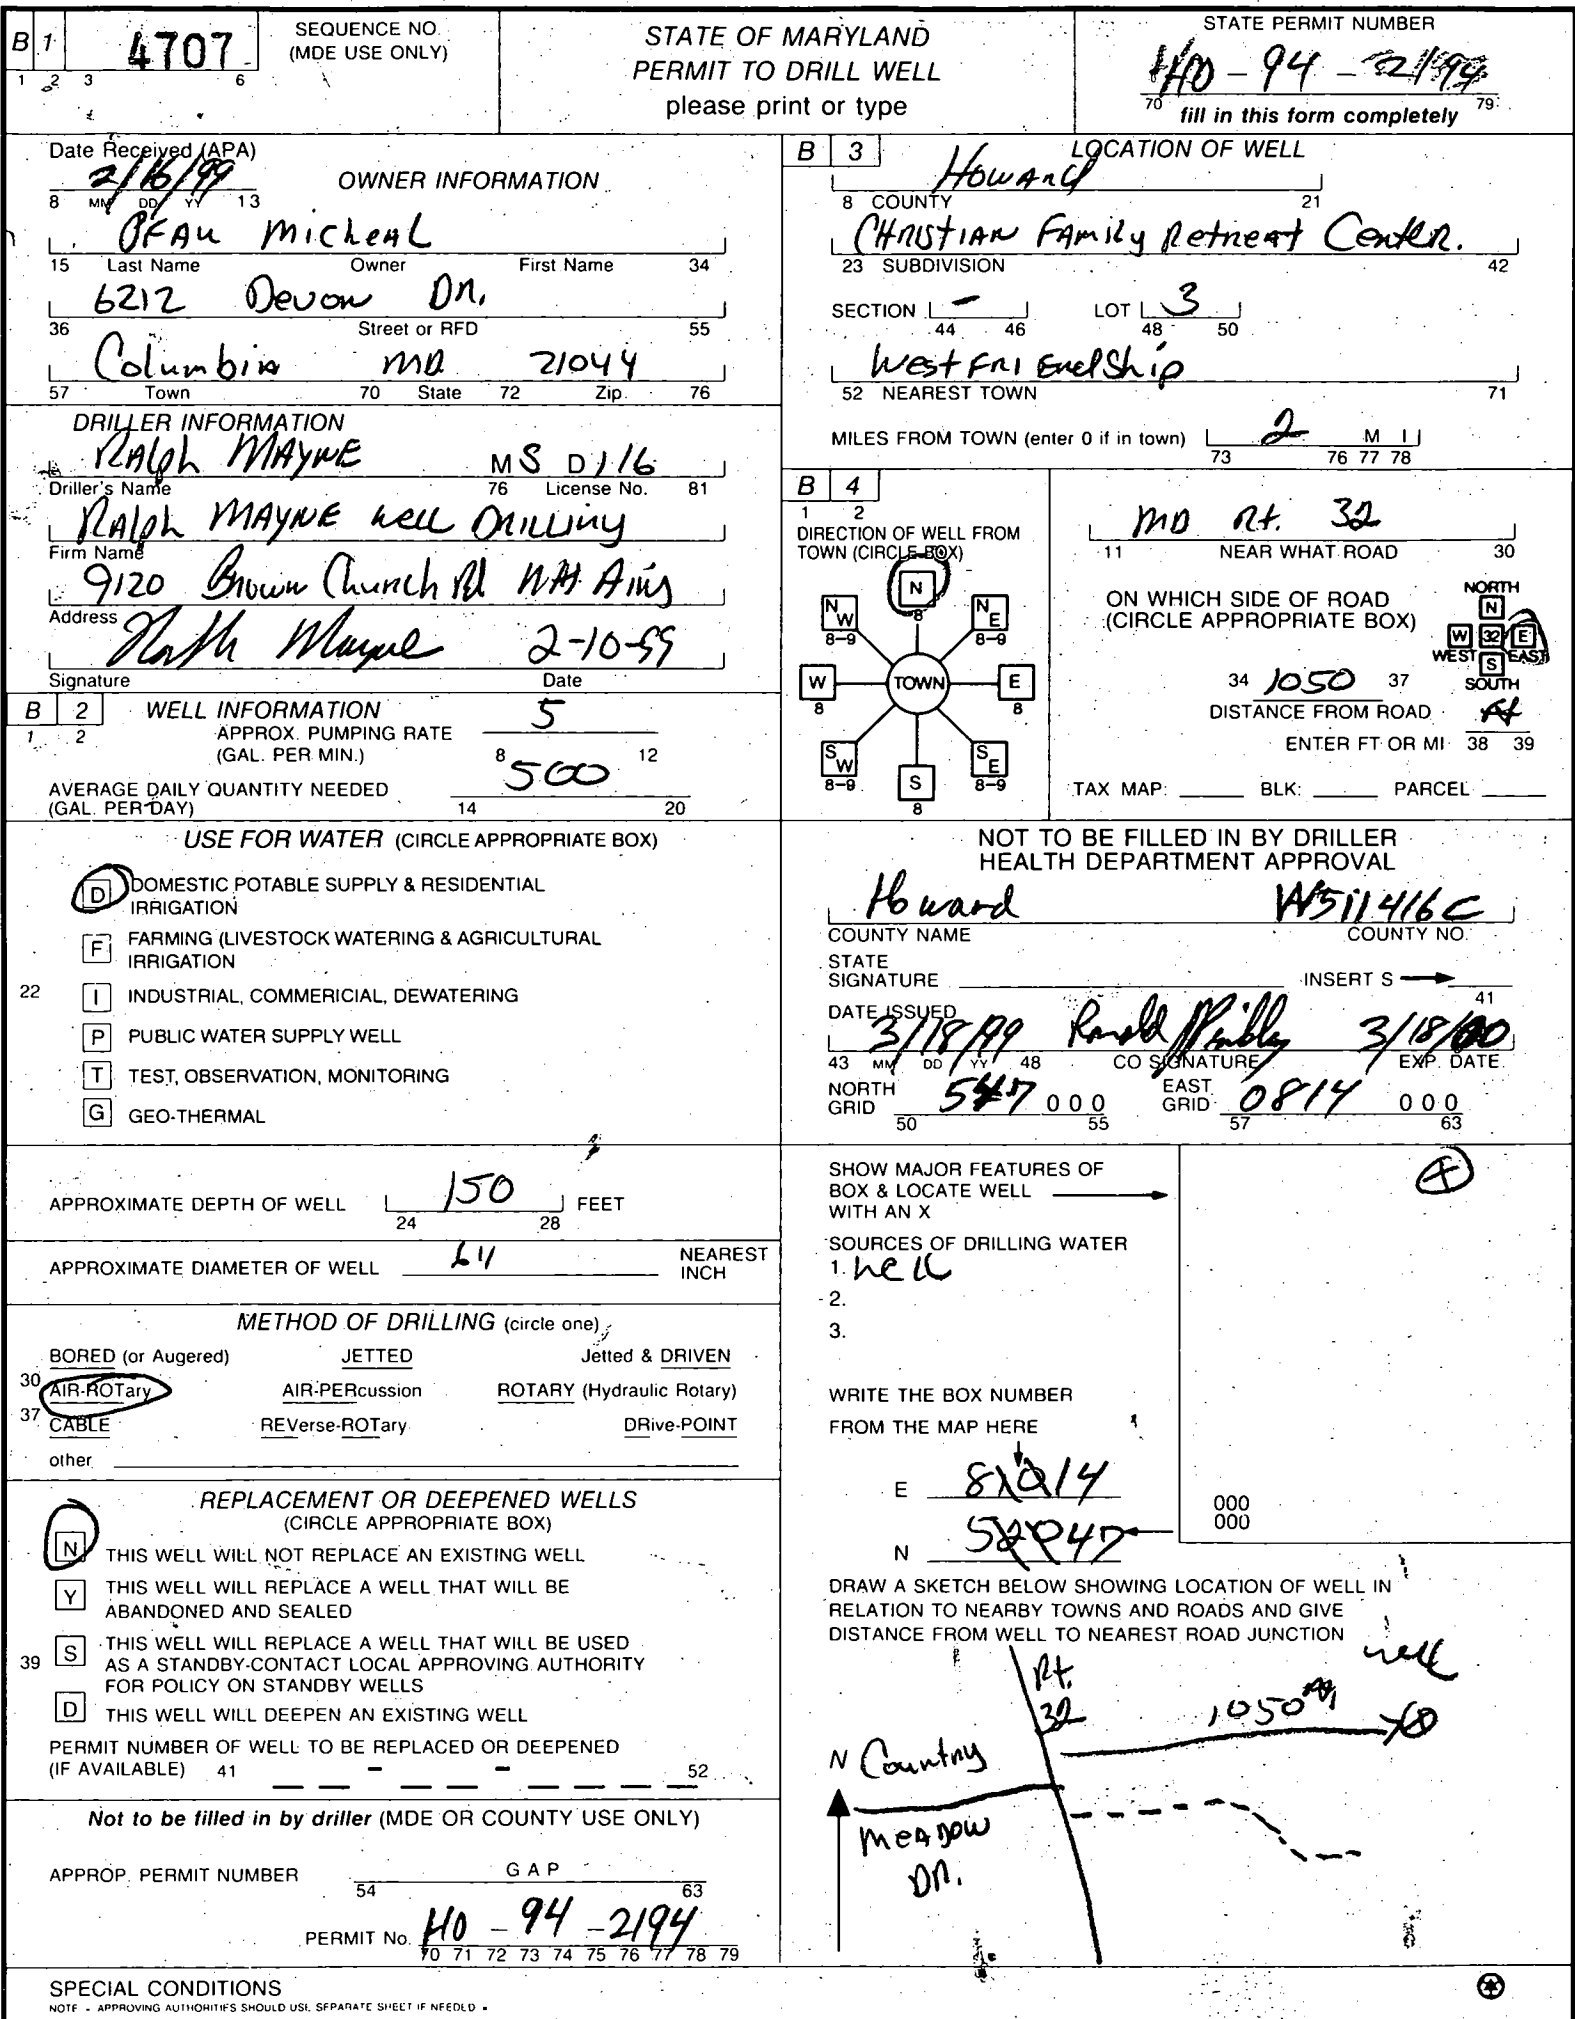 B 1 4707 SEQUENCE NO. (MDE USE ONLY)
1 2 3 6
STATE OF MARYLAND
PERMIT TO DRILL WELL
please print or type
STATE PERMIT NUMBER
HO - 94 - 2194
70 79
fill in this form completely
Date Received (APA)
2/16/99
8 MM DD YY 13
OWNER INFORMATION
PFAU Micheal
15 Last Name Owner First Name 34
6212 Devon DR.
36 Street or RFD 55
Columbia MD 21044
57 Town 70 State 72 Zip 76
DRILLER INFORMATION
RAlph MAYNE MS D 116
Driller's Name 76 License No. 81
RAlph MAYNE well DRILLING
Firm Name
9120 Brown Church Rd Mt. Airy
Address
Ralph Mayne 2-10-99
Signature Date
B 2 WELL INFORMATION
1 2
APPROX. PUMPING RATE 5
(GAL. PER MIN.) 8 12
AVERAGE DAILY QUANTITY NEEDED 500
(GAL. PER DAY) 14 20
USE FOR WATER (CIRCLE APPROPRIATE BOX)
D DOMESTIC POTABLE SUPPLY & RESIDENTIAL
IRRIGATION
F FARMING (LIVESTOCK WATERING & AGRICULTURAL
IRRIGATION
22 I INDUSTRIAL, COMMERICIAL, DEWATERING
P PUBLIC WATER SUPPLY WELL
T TEST, OBSERVATION, MONITORING
G GEO-THERMAL
APPROXIMATE DEPTH OF WELL 150 FEET
24 28
APPROXIMATE DIAMETER OF WELL 6" NEAREST
INCH
METHOD OF DRILLING (circle one)
BORED (or Augered) JETTED Jetted & DRIVEN
30 AIR-ROTary AIR-PERcussion ROTARY (Hydraulic Rotary)
37 CABLE REVerse-ROTary DRive-POINT
other
REPLACEMENT OR DEEPENED WELLS
(CIRCLE APPROPRIATE BOX)
N THIS WELL WILL NOT REPLACE AN EXISTING WELL
Y THIS WELL WILL REPLACE A WELL THAT WILL BE
ABANDONED AND SEALED
39 S THIS WELL WILL REPLACE A WELL THAT WILL BE USED
AS A STANDBY-CONTACT LOCAL APPROVING AUTHORITY
FOR POLICY ON STANDBY WELLS
D THIS WELL WILL DEEPEN AN EXISTING WELL
PERMIT NUMBER OF WELL TO BE REPLACED OR DEEPENED
(IF AVAILABLE) 41 - - 52
Not to be filled in by driller (MDE OR COUNTY USE ONLY)
APPROP. PERMIT NUMBER G A P
54 63
PERMIT No. HO - 94 - 2194
70 71 72 73 74 75 76 77 78 79
SPECIAL CONDITIONS
NOTE - APPROVING AUTHORITIES SHOULD USE SEPARATE SHEET IF NEEDED -
B 3 LOCATION OF WELL
Howard
8 COUNTY 21
CHRISTIAN FAMily Retreat Center.
23 SUBDIVISION 42
SECTION - LOT 3
44 46 48 50
West FRIEndShip
52 NEAREST TOWN 71
MILES FROM TOWN (enter 0 if in town) 2 M I
73 76 77 78
B 4
1 2
DIRECTION OF WELL FROM
TOWN (CIRCLE BOX)
N
8
NW NE
8-9 8-9
W TOWN E
8 8
SW SE
8-9 8-9
S
8
MD Rt. 32
11 NEAR WHAT ROAD 30
ON WHICH SIDE OF ROAD
(CIRCLE APPROPRIATE BOX)
NORTH
N
W 32 E
WEST EAST
S
SOUTH
34 1050 37
DISTANCE FROM ROAD ft
ENTER FT OR MI 38 39
TAX MAP: BLK: PARCEL
NOT TO BE FILLED IN BY DRILLER
HEALTH DEPARTMENT APPROVAL
Howard W511416C
COUNTY NAME COUNTY NO.
STATE
SIGNATURE INSERT S
41
DATE ISSUED
3/18/99 3/18/00
43 MM DD YY 48 CO SIGNATURE EXP. DATE
NORTH
GRID 547 000
50 55
EAST
GRID 0814 000
57 63
SHOW MAJOR FEATURES OF
BOX & LOCATE WELL
WITH AN X
SOURCES OF DRILLING WATER
1. well
2.
3.
WRITE THE BOX NUMBER
FROM THE MAP HERE
E 814
N 547
000
000
DRAW A SKETCH BELOW SHOWING LOCATION OF WELL IN
RELATION TO NEARBY TOWNS AND ROADS AND GIVE
DISTANCE FROM WELL TO NEAREST ROAD JUNCTION
well
Rt.
32
1050 ft
N Country
MEADOW
DR.